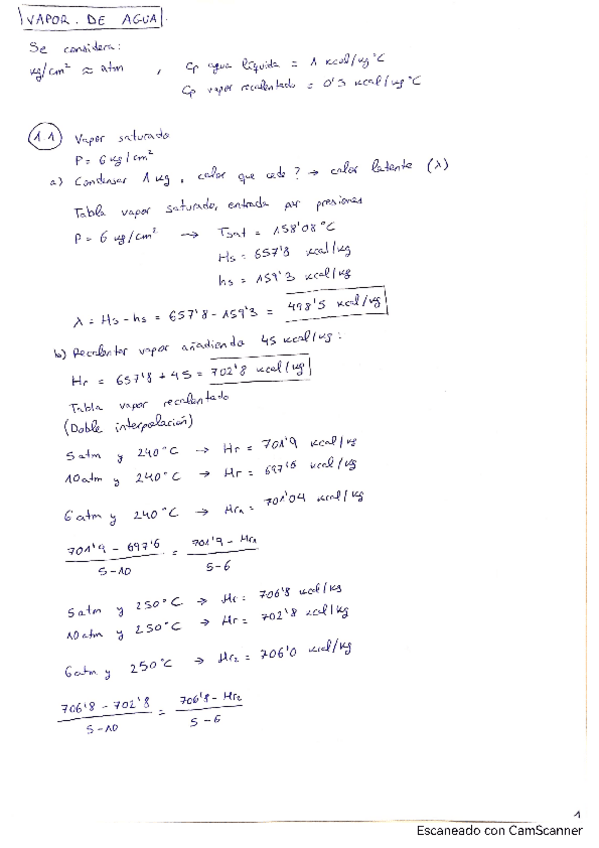 VAPOR. DE AGUA.
Se considera:
kg/cm² ≈ atm , Cp agua líquida = 1 kcal/kg°C
Cp vapor recalentado = 0'5 kcal/kg°C
1.1 Vapor saturado
P = 6 kg/cm²
a) Condensar 1 kg, calor que cede? → calor latente (λ)
Tabla vapor saturado, entrada por presiones
P = 6 kg/cm² → Tsat = 158'08°C
Hs = 657'8 kcal/kg
hs = 159'3 kcal/kg
λ = Hs - hs = 657'8 - 159'3 = 498'5 kcal/kg
b) Recalentar vapor añadiendo 45 kcal/kg:
Hr = 657'8 + 45 = 702'8 kcal/kg
Tabla vapor recalentado
(Doble interpolación)
5 atm y 240°C → Hr = 701'9 kcal/kg
10 atm y 240°C → Hr = 697'6 kcal/kg
6 atm y 240°C → Hr1 = 701'04 kcal/kg
701'9 - 697'6 / 5-10 = 701'9 - Hr1 / 5-6
5 atm y 250°C → Hr = 706'8 kcal/kg
10 atm y 250°C → Hr = 702'8 kcal/kg
6 atm y 250°C → Hr2 = 706'0 kcal/kg
706'8 - 702'8 / 5-10 = 706'8 - Hr2 / 5-6
1
Escaneado con CamScanner